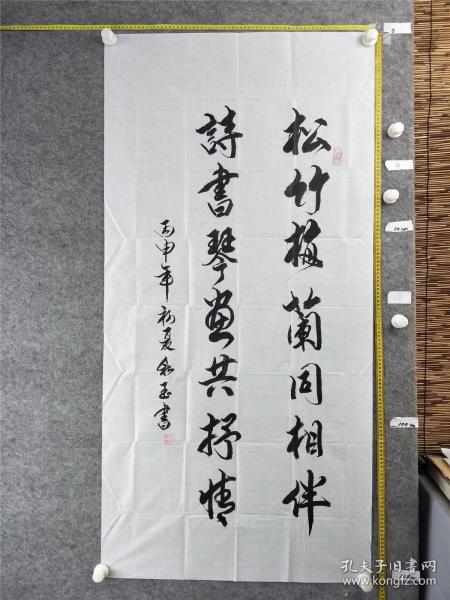 松竹梅蘭同相伴
詩書琴畫共抒情
丙申年初夏永玉書
50cm
100cm
孔夫子旧书网
www.kongfz.com